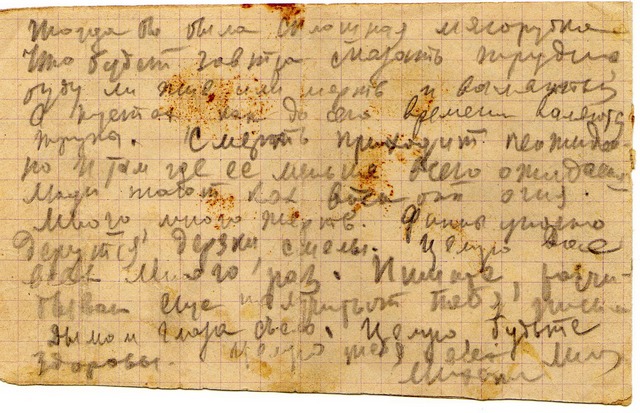 тогда бы была сплошная мясорубка
Что будет завтра сказать трудно,
буду ли жив или мертв и валяться
в кустах как до сего времени валяются
трупы. Смерть приходит неожидан
но и там где ее меньше всего ожидаешь
Люди тают как воск от огня.
Много, много жертв. Финны упорно
дерутся, дерзки, смелы. Целую вас
всех много раз. Пишите,
еще
дымом глаза съело. Целую будьте
здоровы. Целую тебя
Михаил